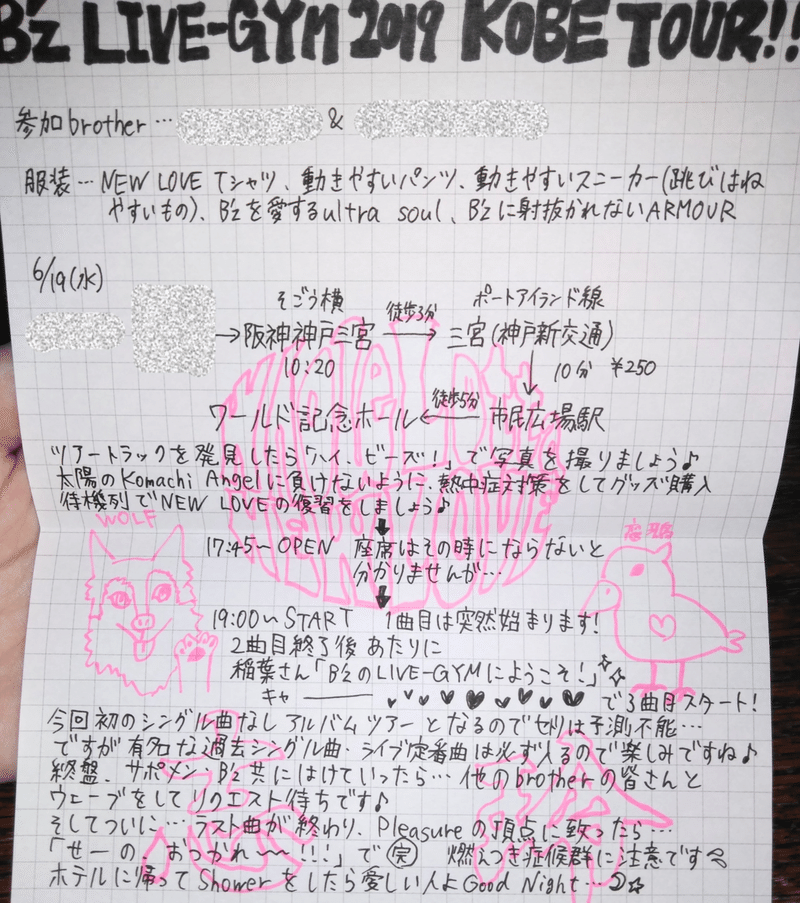 B'z LIVE-GYM 2019 KOBE TOUR!!
参加brother… &
服装… NEW LOVE Tシャツ、動きやすいパンツ、動きやすいスニーカー(跳びはね
やすいもの)、B'zを愛するultra soul、B'zに射抜かれないARMOUR
6/19(水)
そごう横 ポートアイランド線
→阪神神戸三宮 徒歩3分→ 三宮(神戸新交通)
10:20 ↓ 10分 ¥250
ワールド記念ホール ←徒歩5分 市民広場駅
ツアートラックを発見したら「ハイ、ビーズ!」で写真を撮りましょう♪
太陽のKomachi Angelに負けないように、熱中症対策をしてグッズ購入
待機列でNEW LOVEの復習をしましょう♪
WOLF
17:45〜OPEN 座席はその時にならないと
分かりませんが…
19:00〜START 1曲目は突然始まります!
2曲目終了後あたりに
稲葉さん「B'zのLIVE-GYMにようこそ!」
キャ―――♥♥♥♥♥♥♥♥で3曲目スタート!
今回初のシングル曲なしアルバムツアーとなるのでセトリは予測不能…
ですが有名な過去シングル曲・ライブ定番曲は必ず入るので楽しみですね♪
終盤、サポメン、B'z共にはけていったら…他のbrotherの皆さんと
ウェーブをしてリクエスト待ちです♪
そしてついに…ラスト曲が終わり、Pleasureの頂点に致ったら…
「せーの、おつかれ〜〜!!!」で完 燃えつき症候群に注意です
ホテルに帰ってShowerをしたら愛しい人よGood Night…☆